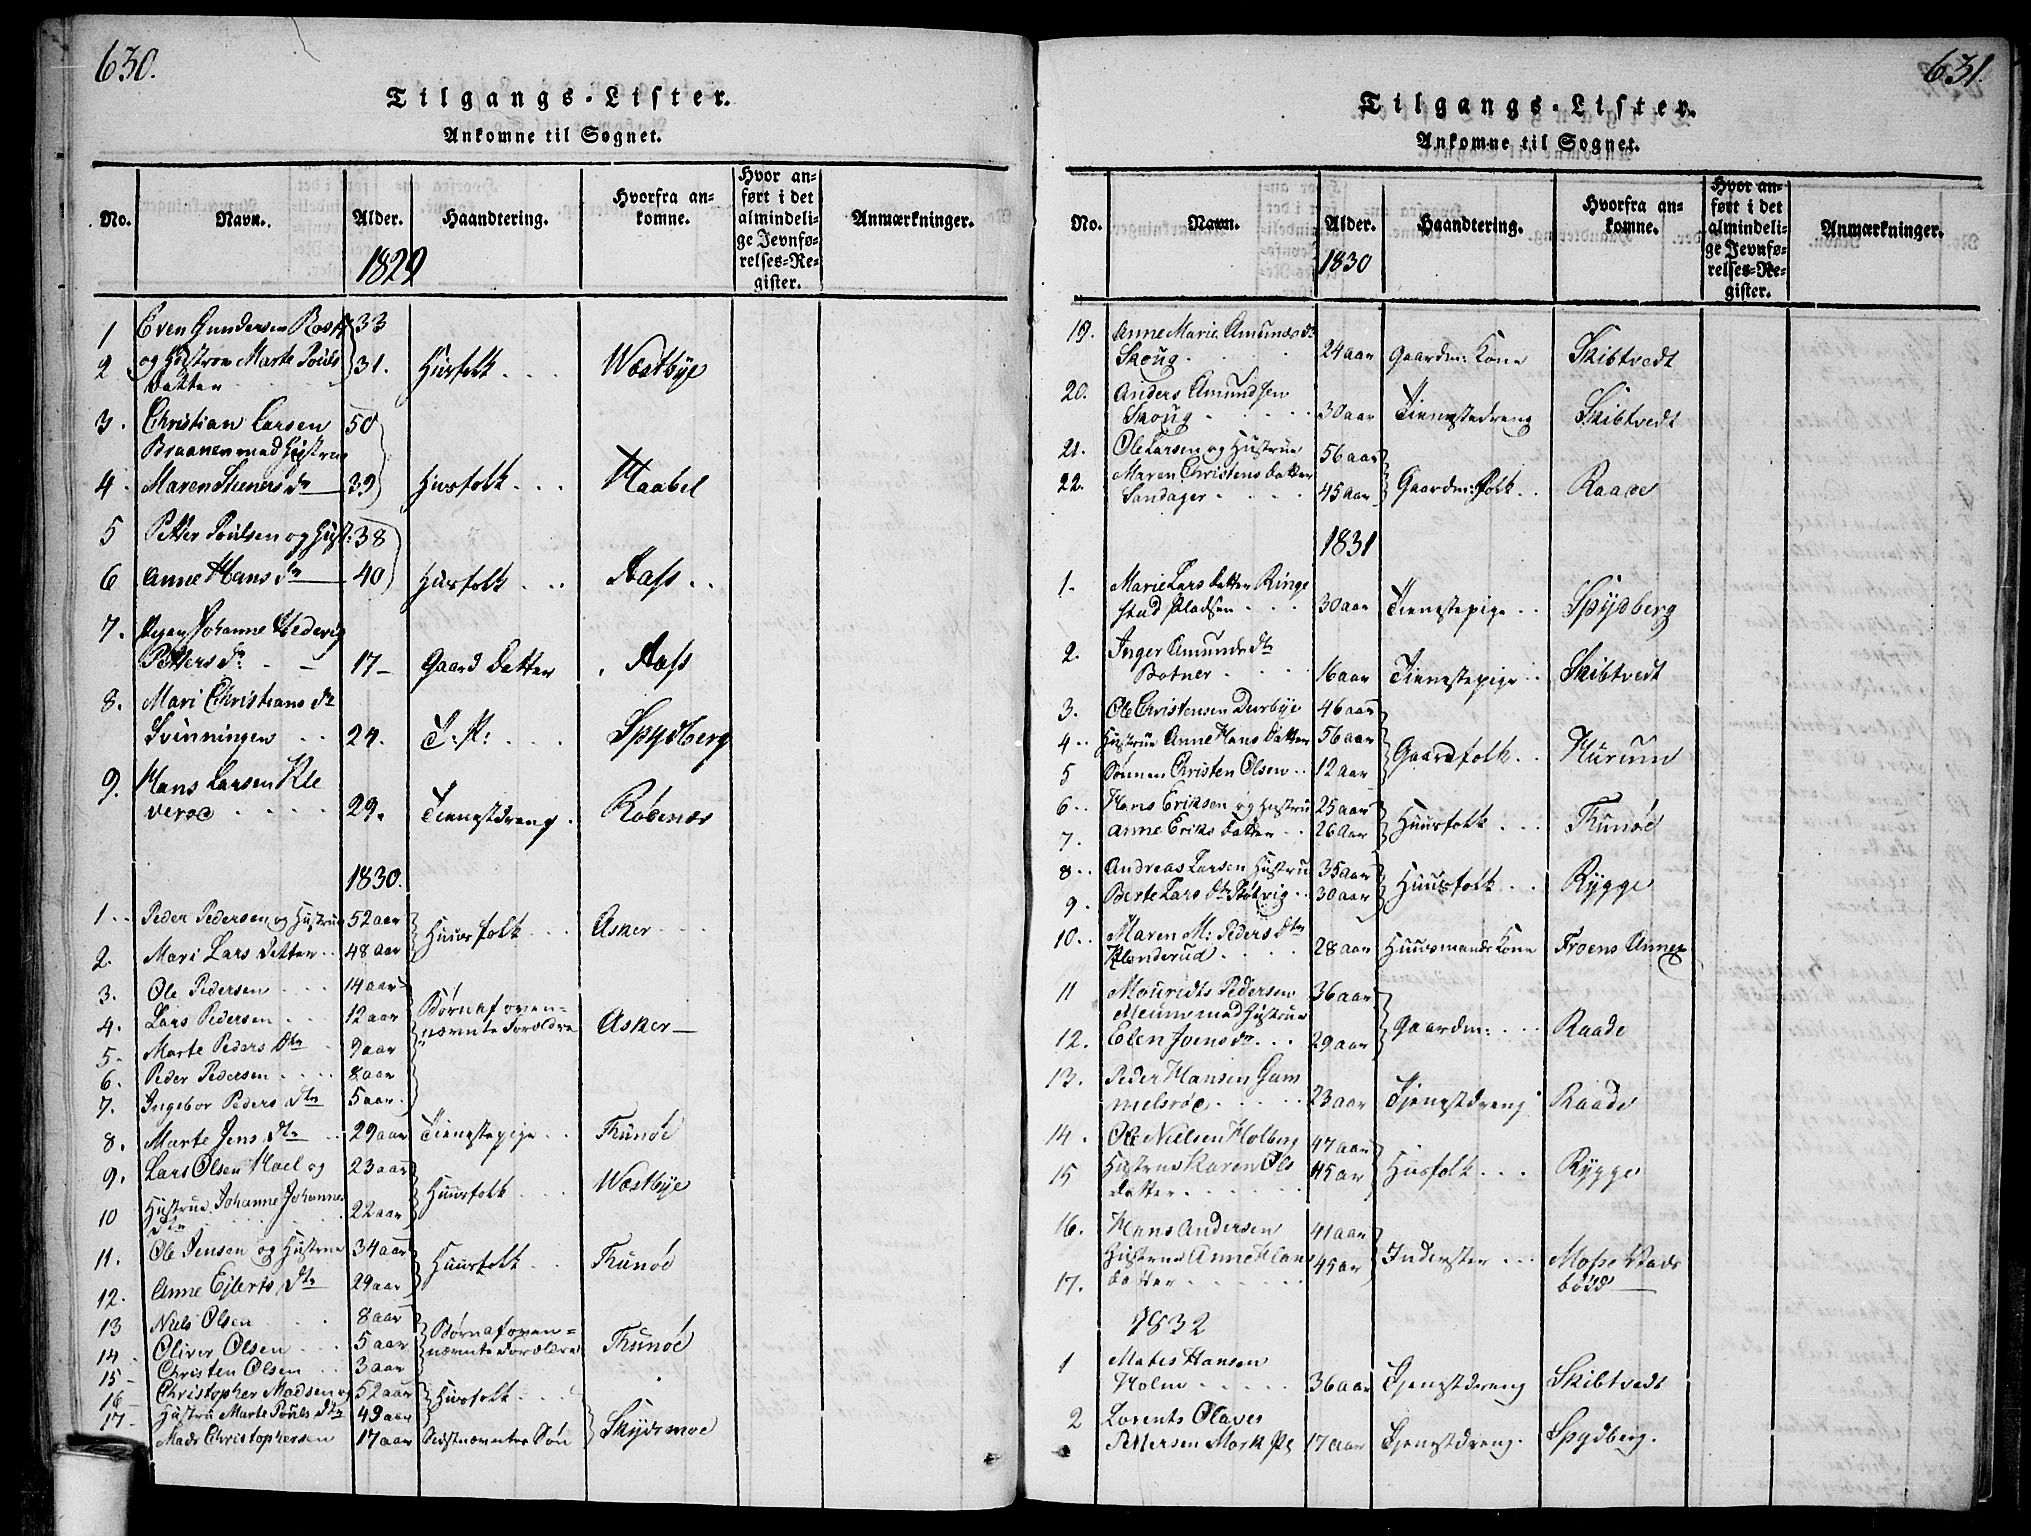 630.
Tilgangs-Lister.
Ankomne til Sognet.
No. Navn. Alder. Haandtering. Hvorfra ankomne. Hvor anført i det almindelige Jevnførelses-Register. Anmærkninger.
1829
1 Even Gundersen 33
2 og Hustroe Marte Pouls 31. Husfolk Wæstbye
datter
3. Christian Larsen 50
Braanen med Hustrue
4. Maren Steners Dr 39 Husfolk Haabel
5 Petter Poulsen og Hust: 38
6 Anne Hans Dr 40 Husfolk Aass
7. Pigen Johanne Hedevig
Petters Dr. 17 Gaard datter Aass
8. Mari Christians Dr
Svenningen 24. T: P: Spydberg
9. Hans Larsen Kle
veroe 29. Tienestdreng Rødenæs
1830.
1 Peder Pedersen og Hustrue 52 aar
2. Mari Lars Datter 48 aar Huusfolk Asker
3. Ole Pedersen 14 aar
4. Lars Pedersen 12 aar Børn af oven=
5 Marte Peders Dtr 9 aar nævnte Forældre Asker
6. Peder Pedersen 8 aar
7. Ingebor Peders Dtr 5 aar
8. Marte Jens Dtr 29 aar Tienestepige Thunøe
9. Lars Olsen Hoel og 23 aar
10 Hustrue Johanne Johannes 22 aar Huusfolk Wæstbye
Dtr
11. Ole Jensen og Hustrue 34 aar
12. Anne Ejlerts Dtr 29 aar Huusfolk Thunøe
13 Niels Olsen 8 aar
14 Oliver Olsen 5 aar Børn af oven=
15 Christen Olsen 3 aar nævnte Forældre Thunøe
16 Christopher Madsen og 52 aar
17 Hustru Marte Pouls Dtr 49 aar Husfolk
Mads Christophersen 17 aar Sidstnævntes Søn Skydsmoe
631.
Tilgangs-Lister.
Ankomne til Sognet.
No. Navn. Alder. Haandtering. Hvorfra ankomne. Hvor anført i det almindelige Jevnførelses-Register. Anmærkninger.
1830
19. Anne Marie Amunds Dr
Skoug 24 aar Gaardm: Kone Skibtvedt
20. Anders Amundsen
Skoug 30 aar Tienestedreng Skibtvedt
21. Ole Larsen og Hustrue 56 aar
22. Maren Christens Datter
Sandager 45 aar Gaardm: Folk Raade
1831
1 Marie Lars Datter Ringe
stad Pladsen 30 aar Tienestepige Spydberg
2. Inger Amunds Dtr
Botner 16 aar Tienestepige Skibtvedt
3. Ole Christensen Durbye 46 aar
4 Hustrue Anne Hans Datter 56 aar
5 Sønnen Christen Olsen 12 aar Gaardfolk Hurum
6 Hans Eriksen og Hustru 25 aar
7. Anne Eriks Datter 26 aar Huusfolk Thunøe
8 Andreas Larsen Hustru 35 aar
9. Berte Lars Dtr Støtvig 30 aar Huusfolk Rygge
10. Maren M: Peders Dtr
Honderud 28 aar Huusmands Kone Froens Annex
11 Mouridts Pedersen 36 aar
Meum med Hustrue
12. Elen Joens Dr 29 aar Gaardm: Raade
13. Peder Hansen Gam
melsroe 23 aar Tjenestdreng Raade
14. Ole Nielsen Holberg 47 aar
15 Hustrue Karen Ols 45 aar Husfolk Rygge
datter
16. Hans Andersen 41 aar
Hustrue Anne Hans 45 aar Inderster Mosse Stads
17. datter bøid
1832
1 Mates Hansen
Holm 36 aar Tjenestdreng Skibtvedt
2 Lorents Olaves
Pettersen Mork Pl 17 aar Tjenestdreng. Spydberg.